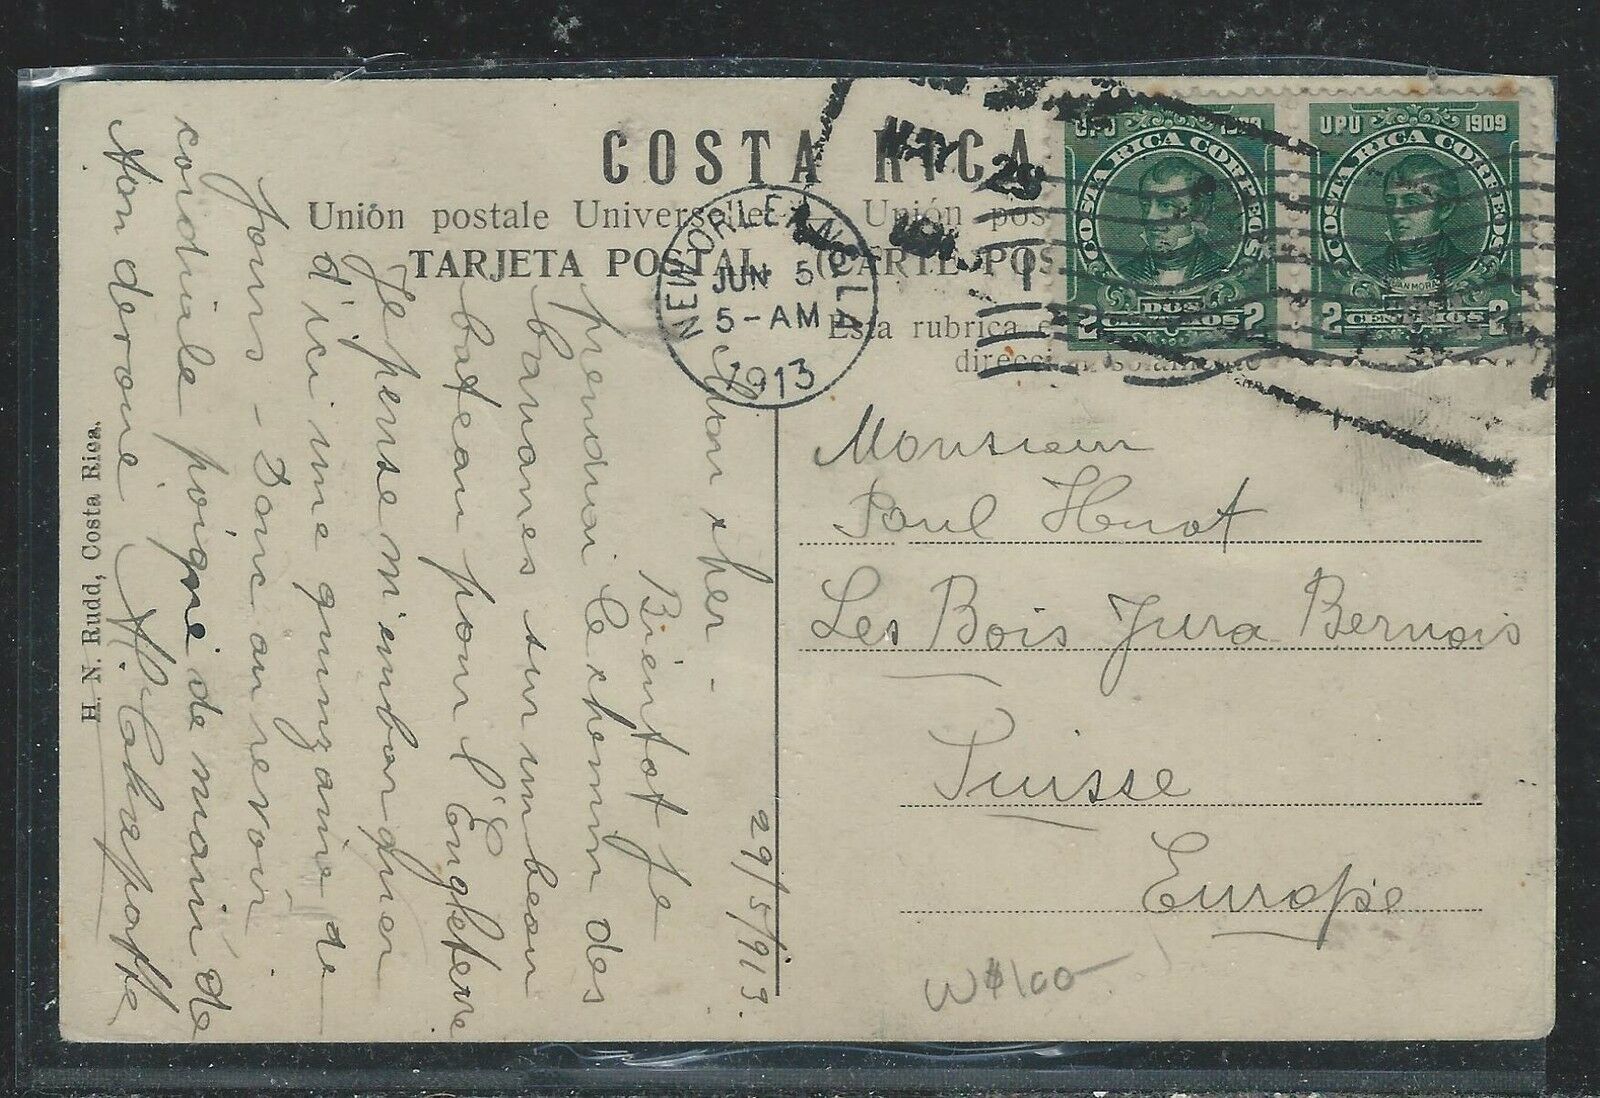 COSTA RICA
Unión postale Universelle. — Unión pos
TARJETA POSTAL (CARTE POS
Esta rubrica e
direcci solamente
UPU 1909
COSTA RICA CORREOS
2 DOS CENTIMOS 2
UPU 1909
COSTA RICA CORREOS
JUAN MORA
2 CENTIMOS 2
MAY 28
NEW ORLEANS, LA
JUN 5
5-AM
1913
29/5/913.
Mon cher -
Bientot je
prendrai le chemin des
bananes sur un beau
bateau pour l'Engleterre
Je pense m'embarquer
d'ici une quinzaine de
jours - Donc au revoir
cordiale poignée de main de
Ton dévoué
Monsieur
Paul Huot
Les Bois Jura Bernois
Suisse
Europe
W$100-
H. N. Rudd, Costa Rica.